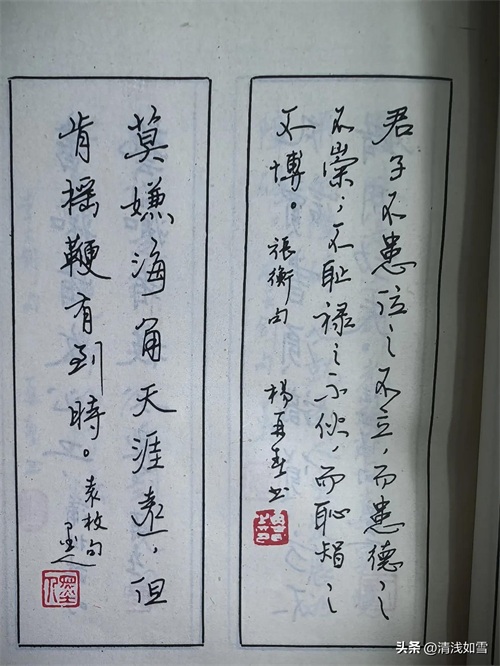 君子不患位之不立，而患德之
不崇；不耻禄之不伙，而恥智之
不博。 張衡句 楊再春书
莫嫌海角天涯遠，但
肯摇鞭有到時。 袁枚句
头条 @清浅如雪